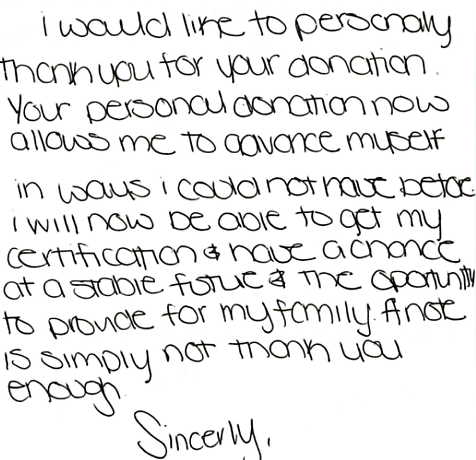 i would like to personally
thank you for your donation.
Your personal donation now
allows me to advance myself
in ways i could not have before
i will now be able to get my
certification & have a chance
at a stable future & the oportunity
to provide for my family. A note
is simply not thank you
enough.
Sincerly,